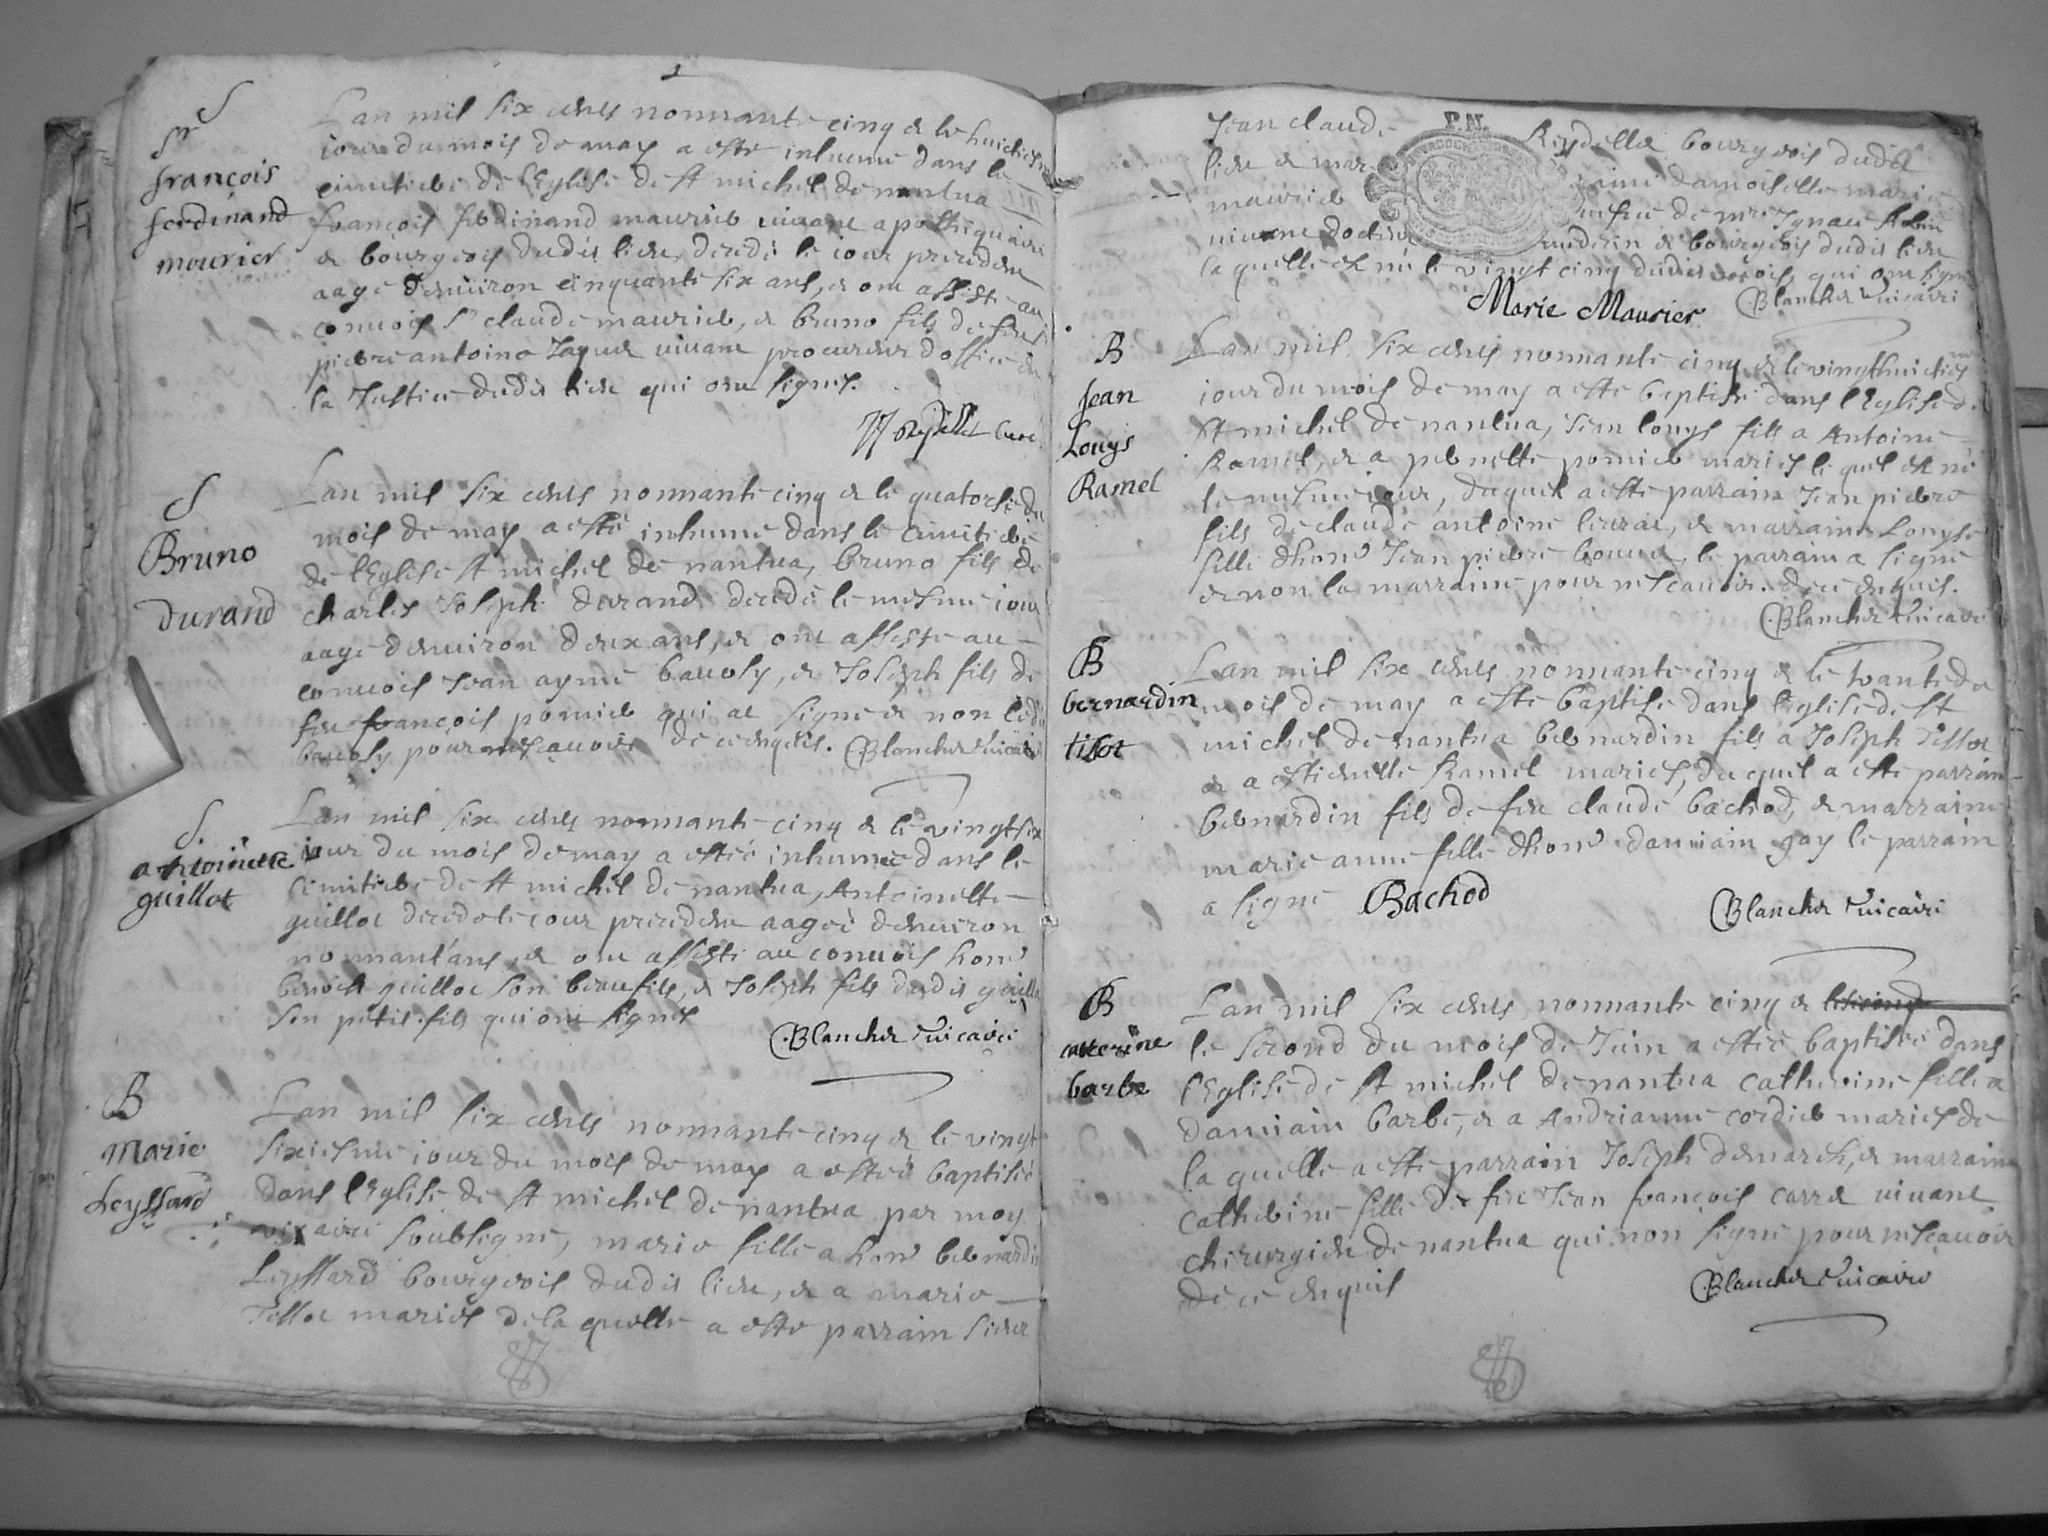 S
Sr
françois
ferdinand
mourier
Lan mil six cents nonnante cinq & le huictiesme
iour du mois de may a este inhumé dans le
cimetiere de l'Eglise de st michel de nantua
françois ferdinand maurier vivant apothiquaire
& bourgeois dudit lieu, decedé le iour precedent
aagé d'environ cinquante six ans, & ont assisté au
convois Sr claude maurier, & bruno fils de feu
pierre antoine Jaquet vivant procureur doffice de
la Justice dudit lieu qui ont signes.
curé
S
Bruno
Durand
Lan mil six cents nonnante cinq & le quatorse du
mois de may a esté inhumé dans le cimitiere
de l'Eglise st michel de nantua, bruno fils de
charles Joseph durand decedé le mesme iour
aagé denuiron deux ans, & ont assisté au
conuois Jean aymé bauoly, & Joseph fils de
feu françois pomier qui a signé & non ledit
bauoly pour ne scauoir de ce enquis. Blanchet Vicaire
S.
antoinette
guillot
Lan mil six cents nonnante cinq & le vingt six
iour du mois de may a esteé inhumeé dans le
Cimitiere de st michel de nantua, Antoinette
guillot decedé le iour precedent aageé denuiron
nonnant'ans, & ont assisté au conuois honr
benoist guillot son beaufils, & Joseph fils dudit guillot
son petit fils qui ont signes
Blanchet Vicaire
B
Marie
Leyssard
Lan mil six cents nonnante cinq & le vingt
sixiesme iour du mois de may a esteé baptiseé
dans l'Eglise de st michel de nantua par moy
vicaire soubsigné, marie fille a honr bernardin
Leyssard bourgeois dudit lieu, & a marie
Tissot maries de laquelle a este parrain sieur
Jean claude Reydellet bourgeois dudit
lieu & mar raine damoiselle marie
maurier de mre Ignace
vivant docteur medecin & bourgeois dudit lieu
laquelle est né le vingt cinq dudit mois, qui ont signé
Marie Maurier Blanchet Vicaire
B
Jean
Louys
Ramel
Lan mil six cents nonnante cinq & le vingthuictiesme
iour du mois de may a este baptisé dans l'Eglise de
st michel de nantua, Jean louys fils a Antoine
Ramel, & a pernette pomier maries lequel est né
le mesme iour, duquel a este parrain Jean pierre
fils de claude antoine leurat, & marraine Louyse
fille dhonr Jean pierre bonnet, le parrain a signé
& non la marraine pour ne scauoir. de ce enquis.
Blanchet Vicaire
B
bernardin
tisot
Lan mil six cents nonnante cinq & le trante du
mois de may a este baptisé dans l'eglise de st
michel de nantua bernardin fils a Joseph Tissot
& a estiennette Ramel maries, duquel a este parrain
bernardin fils de feu claude bachod, & marraine
marie anne fille dhonr damiain gay le parrain
a signé Bachod Blanchet Vicaire
B
catterine
barbe
Lan mil six cents nonnante cinq & le second
le second du mois de Juin a esteé baptiseé dans
l'Eglise de st michel de nantua catherine fille a
damiain barbe, & a Andrianne cordier maries de
laquelle a este parrain Joseph demarest, & marraine
catherine fille de feu Jean françois carra vivant
chirurgien de nantua qui non signé pour ne scauoir
de ce enquis Blanchet Vicaire